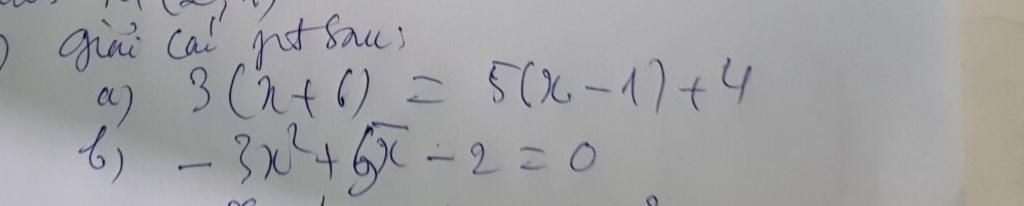 giải các pt sau:
a) 3(x+6) = 5(x-1)+4
b) -3x²+5x-2=0